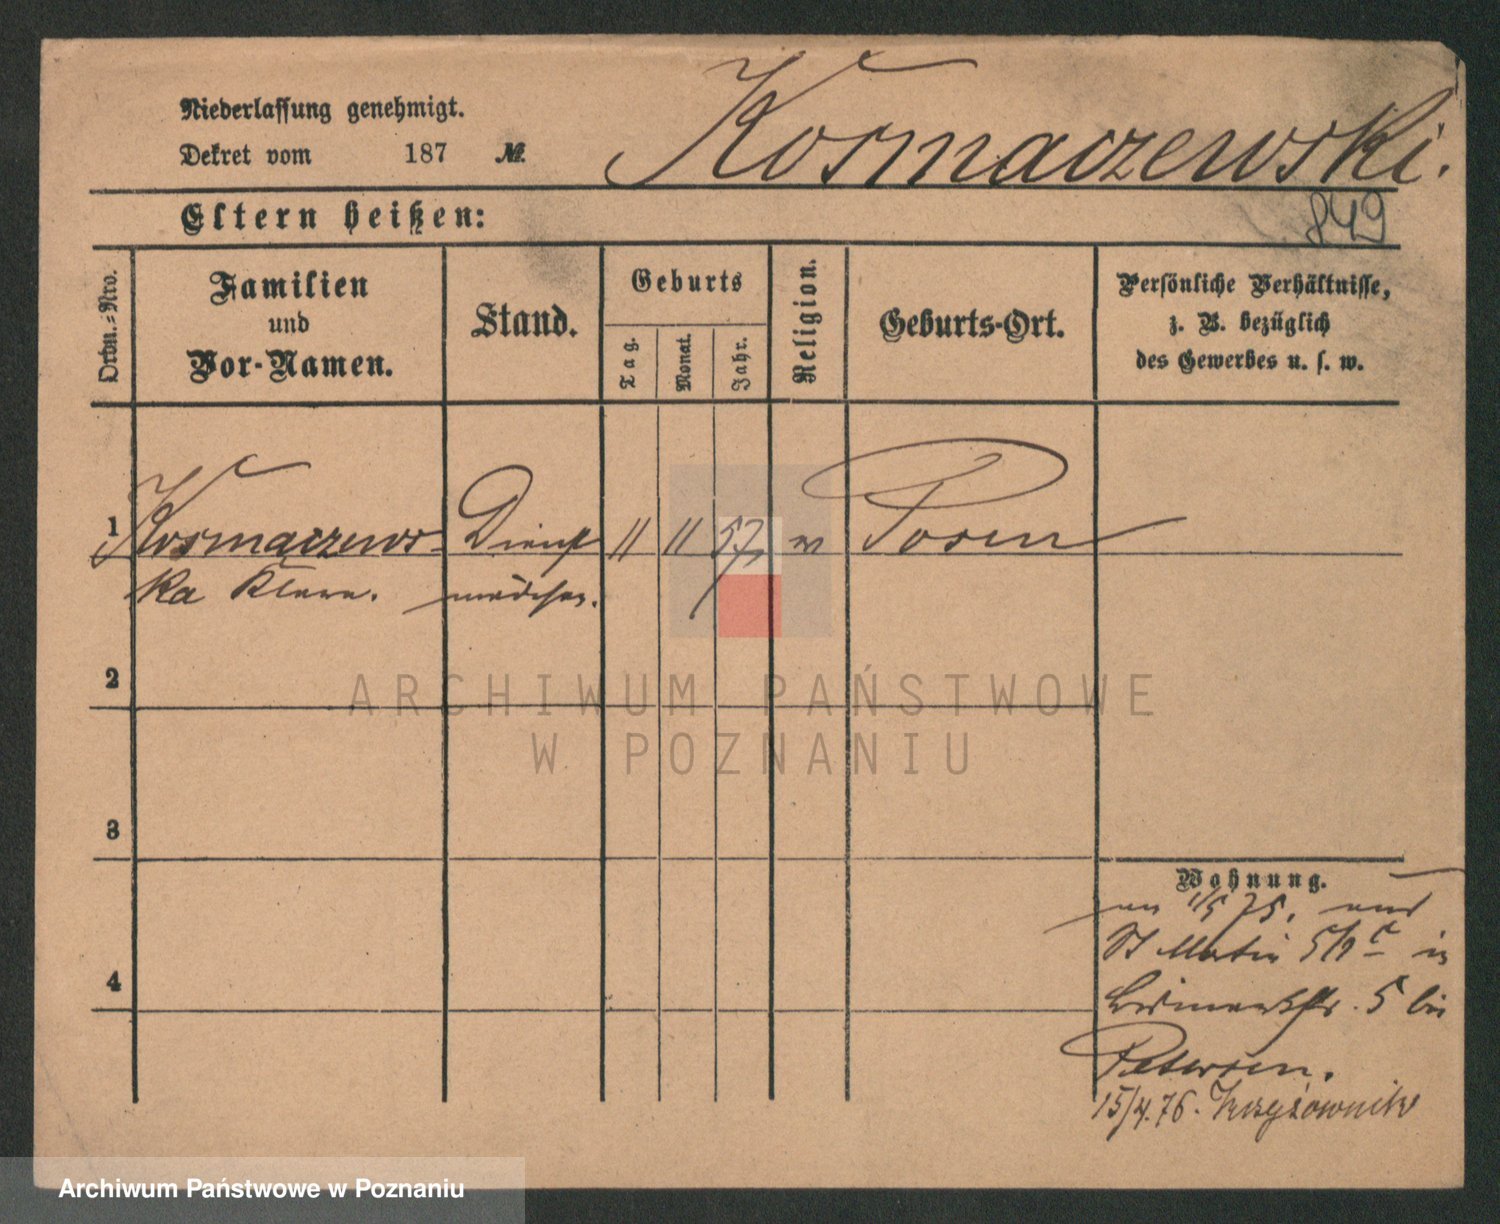 Niederlassung genehmigt.
Dekret vom 187 №
Kosmaczewski.
849
Eltern heißen:
Ordn.-Nro.
Familien
und
Vor-Namen.
Stand.
Geburts
Tag.
Monat.
Jahr.
Religion.
Geburts-Ort.
Persönliche Verhältnisse,
z. B. bezüglich
des Gewerbes u. s. w.
1 Kosmaczews- Dienst 11 11 57 Posen
ka Klara. mädchen.
2
3
4
Wohnung.
1/5 75.
St Martin in
5 bei
Petersen.
15/4.76. Krzyżownik
ARCHIWUM PAŃSTWOWE
W POZNANIU
Archiwum Państwowe w Poznaniu